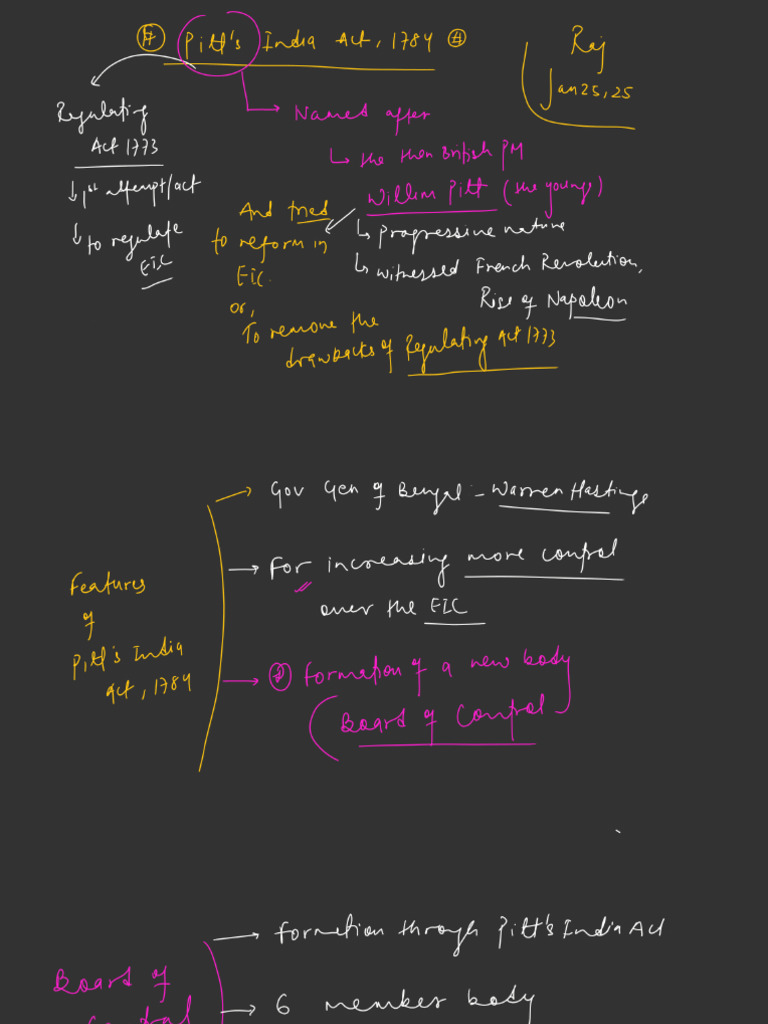 # Pitt's India Act, 1784 #
Raj
Jan 25, 25
Regulating
Act 1773
1st attempt/act
to regulate
EIC
Named after
the then British PM
William Pitt (the younge)
progressive nature
witnessed French Revolution,
Rise of Napoleon
And tried
to reform in
EIC.
or,
To remove the
drawbacks of Regulating Act 1773
Features
of
Pitt's India
Act, 1784
Gov Gen of Bengal - Warren Hastings
For increasing more control
over the EIC
# Formation of a new body
Board of Control
Board of
Control
Formation through Pitt's India Act
6 member body